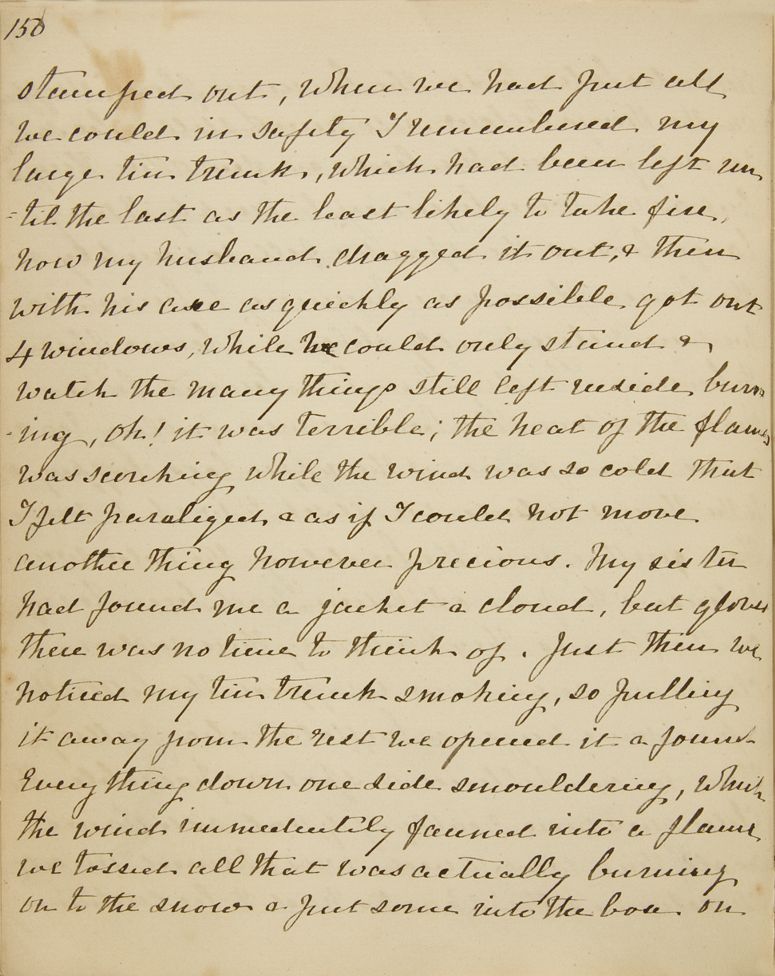 150
stamped out, When we had put all
we could in safety I remembered my
large tin trunk, which had been left un
=til the last as the least likely to take fire,
now my husband dragged it out, & then
with his axe as quickly as possible got out
4 windows, while we could only stand &
watch the many things still left inside burn
-ing, Oh! it was terrible; the heat of the flames
was scorching while the wind was so cold that
I felt paraliged & as if I could not move
another thing however precious. My sister
had found me a jacket & cloud, but gloves
there was no time to think of. Just then we
noticed my tin trunk smoking, so pulling
it away from the rest we opened it & found
Every thing down one side smouldering, which
the wind immediately fanned into a flame
we tossed all that was actually burning
on to the snow & put some into the box on